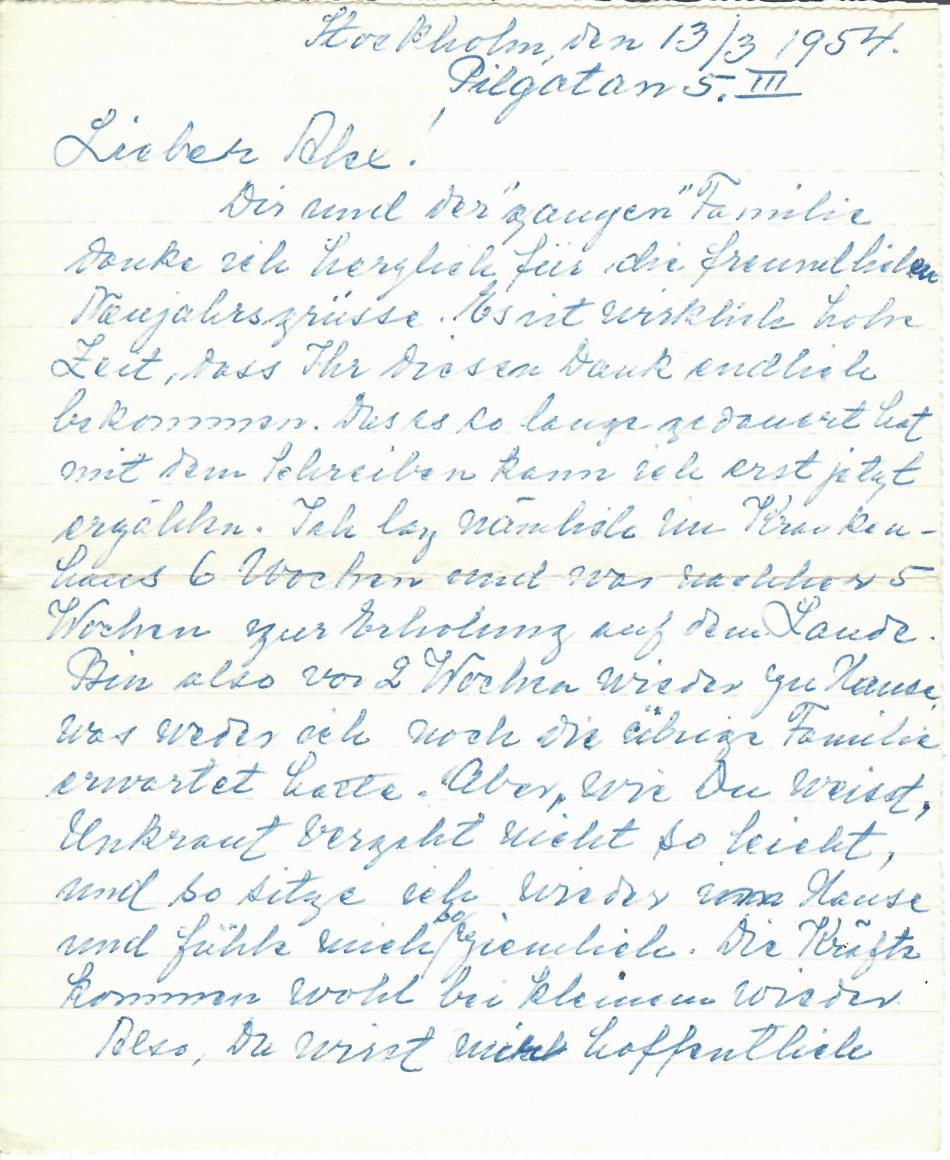 Stockholm, den 13/3 1954.
Pilgatan 5. III
Lieber Alex!
Dir und der "ganzen" Familie
danke ich herzlich für die freundlichen
Neujahrsgrüsse. Es ist wirklich hohe
Zeit, dass Ihr diesen Dank endlich
bekommen. Das es so lange gedauert hat
mit dem Schreiben kann ich erst jetzt
erzählen. Ich lag nämlich im Kranken-
haus 6 Wochen und war nachher 5
Wochen zur Erholung auf dem Lande.
Bin also vor 2 Wochen wieder zu Hause,
was weder ich noch die übrige Familie
erwartet hatte. Aber, wie Du weisst,
Unkraut vergeht nicht so leicht,
und so sitze ich wieder im Hause
und fühle mich so ziemlich. Die Kräfte
kommen wohl bei kleinem wieder.
Also, Du wirst mir hoffentlich